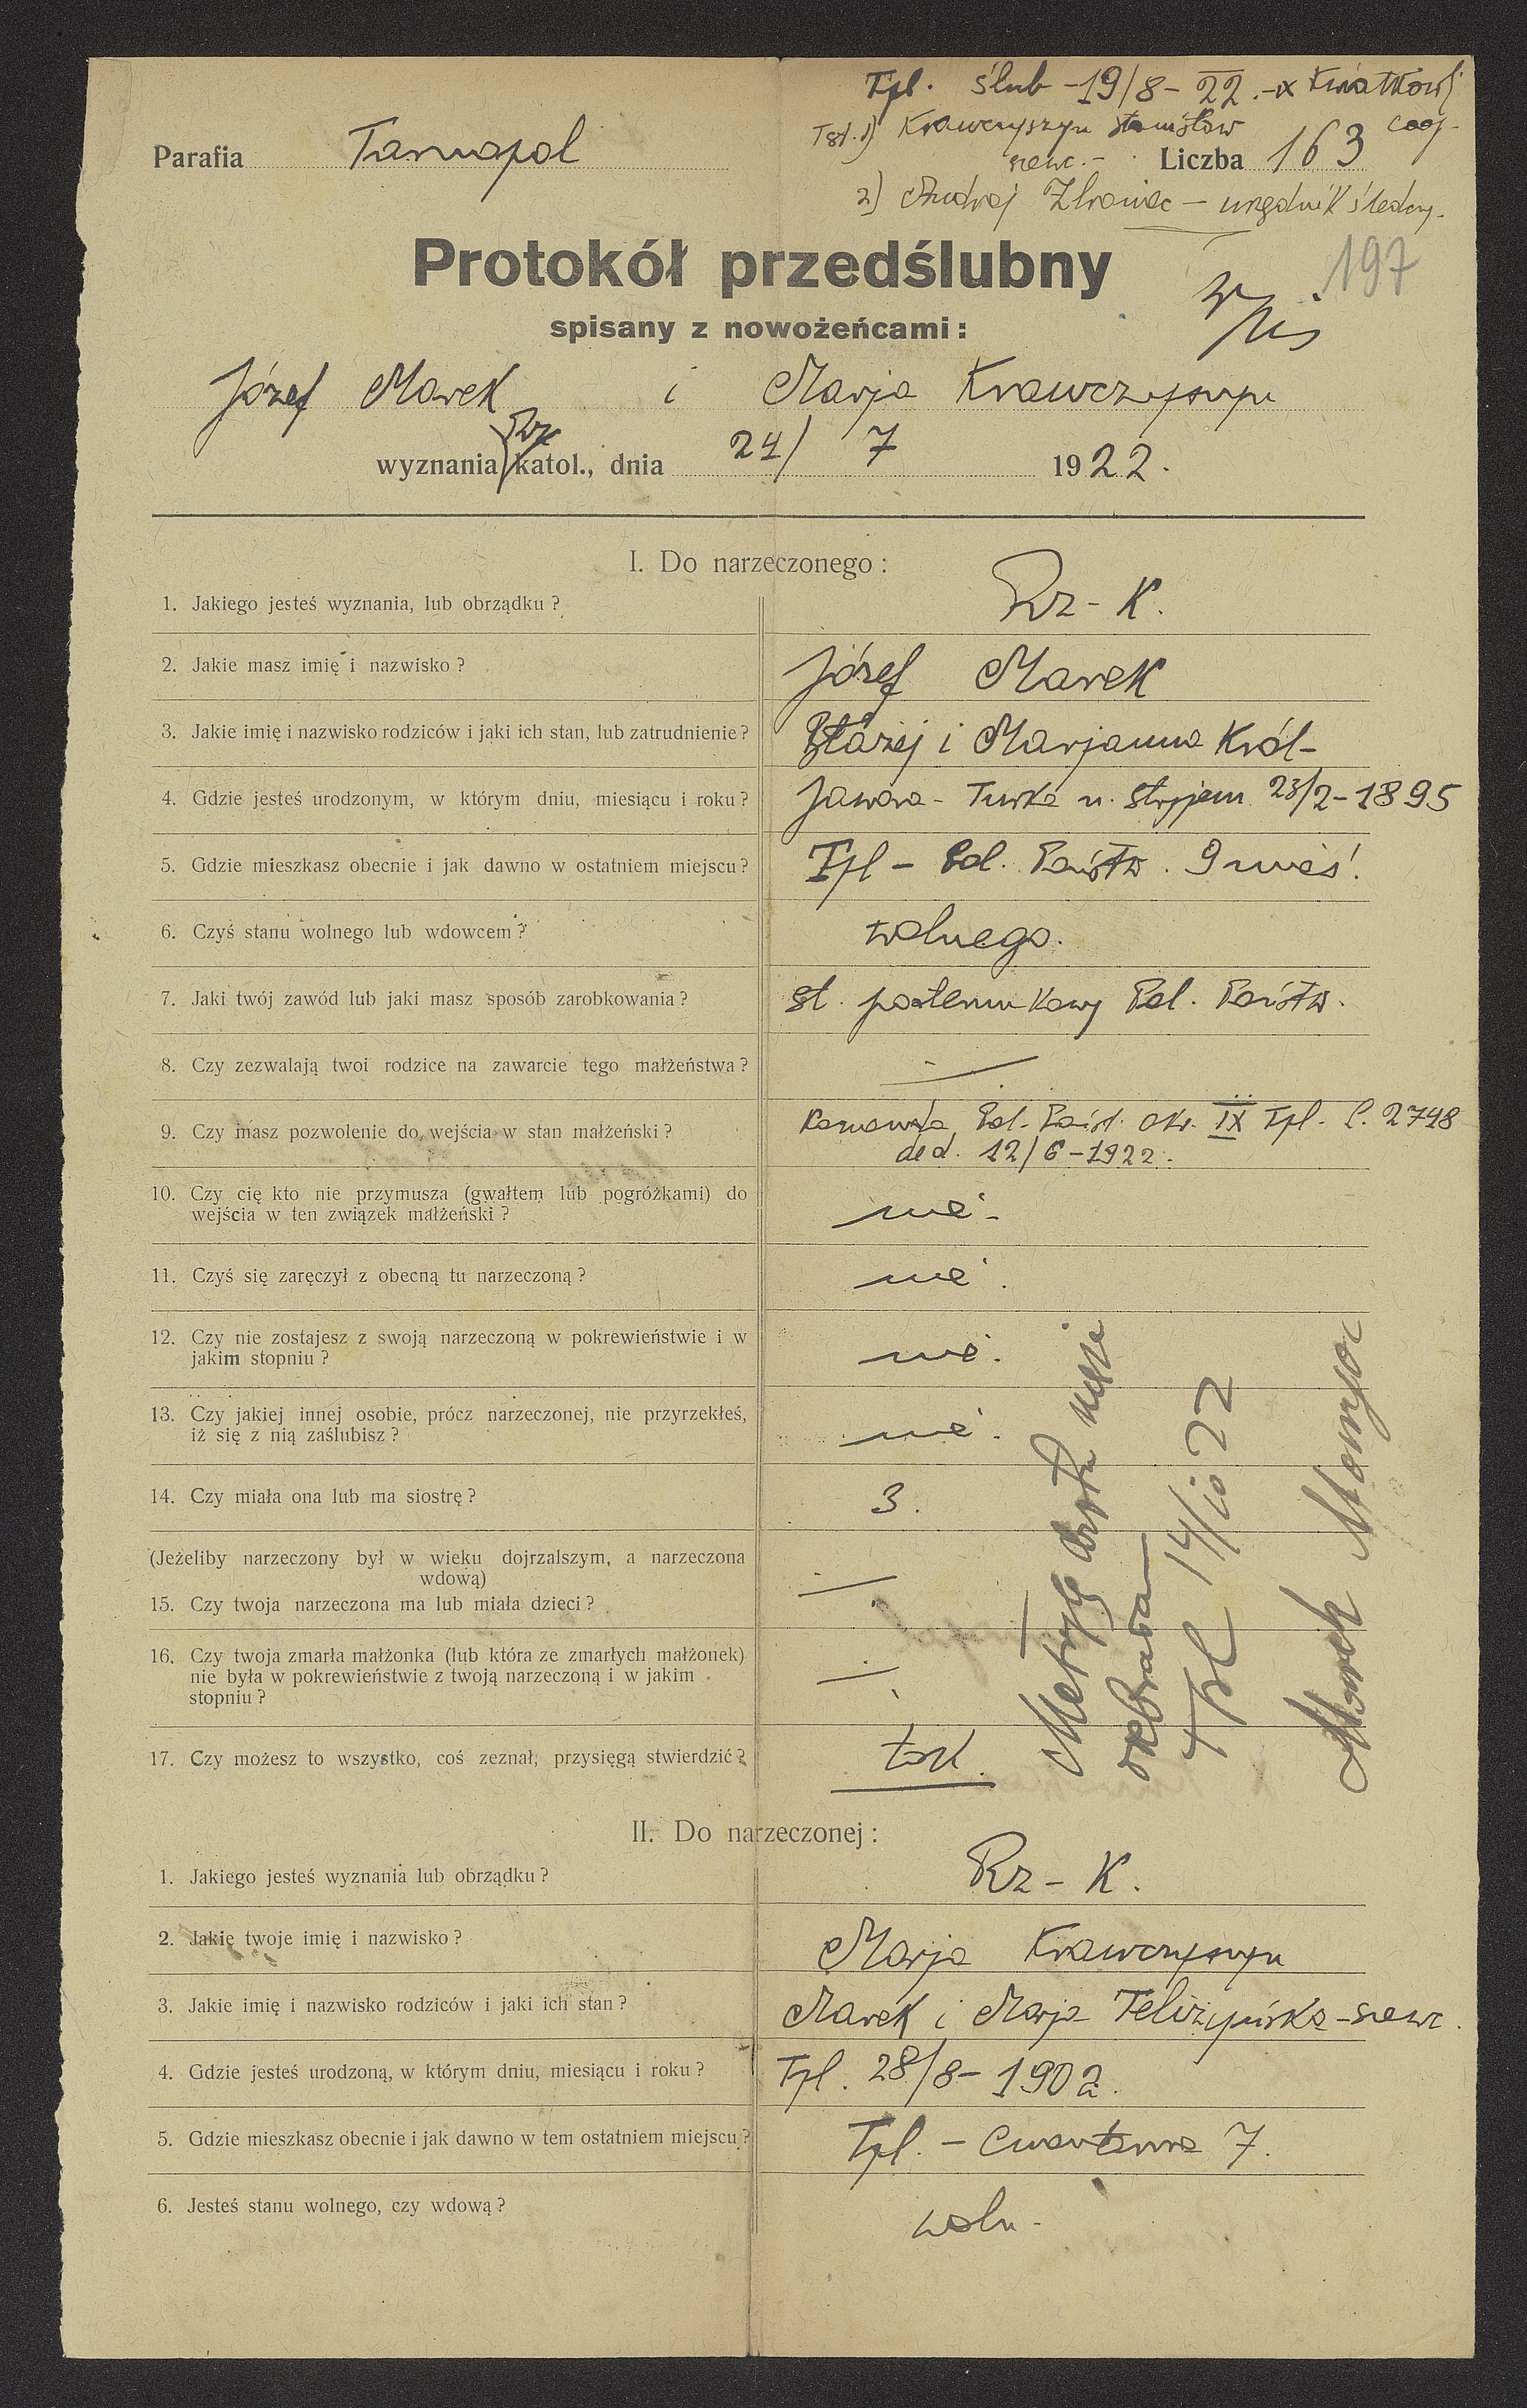 Tpl. ślub - 19/8 - 22. - x Kwiatkowski
Tst. 1) Krawczyszyn Stanisław coop.
szewc. -
Parafia Tarnopol Liczba 163
2) Andrzej - urzędnik śledczy.
197
Protokół przedślubny
Wpis
spisany z nowożeńcami:
Józef Marek i Marja Krawczyszyn
Rz
wyznania katol., dnia 24/ 7 1922.
I. Do narzeczonego:
1. Jakiego jesteś wyznania, lub obrządku? Rz - K.
2. Jakie masz imię i nazwisko? Józef Marek
3. Jakie imię i nazwisko rodziców i jaki ich stan, lub zatrudnienie? Błażej i Marjanna Król -
4. Gdzie jesteś urodzonym, w którym dniu, miesiącu i roku? Jawora - Turka n. Stryjem 23/2 - 1895
5. Gdzie mieszkasz obecnie i jak dawno w ostatniem miejscu? Tpl - Pol. Państw. 9 mieś.
6. Czyś stanu wolnego lub wdowcem? wolnego.
7. Jaki twój zawód lub jaki masz sposób zarobkowania? st. posterunkowy Pol. Państw.
8. Czy zezwalają twoi rodzice na zawarcie tego małżeństwa? —
9. Czy masz pozwolenie do wejścia w stan małżeński? Komenda Pol. Państ. Okr. IX Tpl. L. 2748
ded. 12/6 - 1922.
10. Czy cię kto nie przymusza (gwałtem lub pogróżkami) do
wejścia w ten związek małżeński? nie -
11. Czyś się zaręczył z obecną tu narzeczoną? nie.
12. Czy nie zostajesz z swoją narzeczoną w pokrewieństwie i w
jakim stopniu? nie.
13. Czy jakiej innej osobie, prócz narzeczonej, nie przyrzekłeś,
iż się z nią zaślubisz? nie.
14. Czy miała ona lub ma siostrę? 3.
(Jeżeliby narzeczony był w wieku dojrzalszym, a narzeczona
wdową)
15. Czy twoja narzeczona ma lub miała dzieci? —
16. Czy twoja zmarła małżonka (lub która ze zmarłych małżonek)
nie była w pokrewieństwie z twoją narzeczoną i w jakim
stopniu? —
17. Czy możesz to wszystko, coś zeznał, przysięgą stwierdzić? tak.
Metrykę chrztu męża
odebrałam
Tpl 14/10 22
Marek Marya
II. Do narzeczonej:
1. Jakiego jesteś wyznania lub obrządku? Rz - K.
2. Jakie twoje imię i nazwisko? Marja Krawczyszyn
3. Jakie imię i nazwisko rodziców i jaki ich stan? Marek i Marja - szewc.
4. Gdzie jesteś urodzoną, w którym dniu, miesiącu i roku? Tpl. 28/8 - 1902.
5. Gdzie mieszkasz obecnie i jak dawno w tem ostatniem miejscu? Tpl. - 7.
6. Jesteś stanu wolnego, czy wdową? woln -